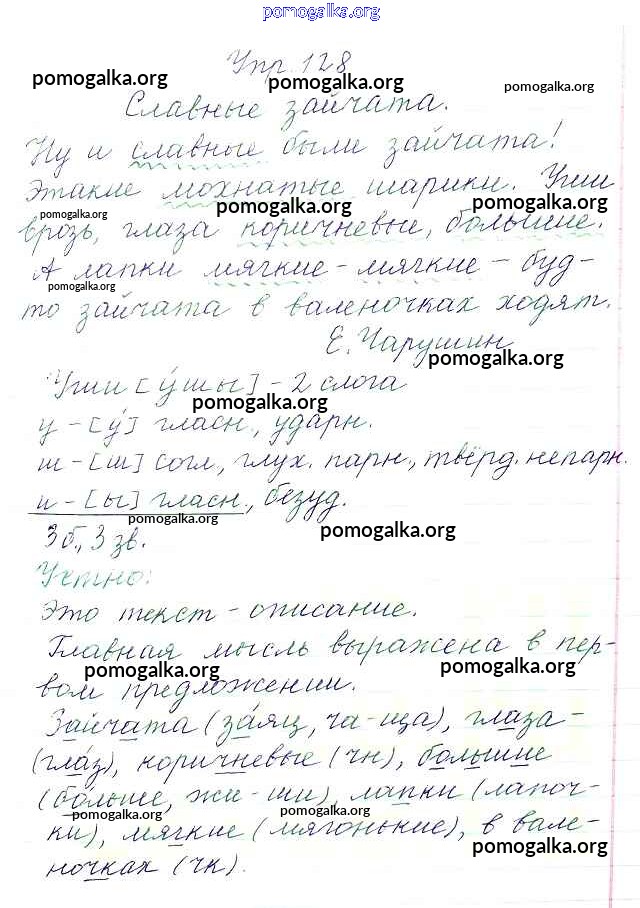 pomogalka.org
Упр. 128
pomogalka.org pomogalka.org pomogalka.org
Славные зайчата.
Ну и славные были зайчата!
Этакие мохнатые шарики. Уши
pomogalka.org pomogalka.org pomogalka.org
врозь, глаза коричневые, большие.
А лапки мягкие-мягкие – буд-
pomogalka.org
то зайчата в валеночках ходят.
Е. Чарушин
pomogalka.org
Уши [у́шы] – 2 слога
pomogalka.org
у – [у́] гласн., ударн.
ш – [ш] согл., глух. парн., твёрд. непарн.
и – [ы] гласн., безуд.
pomogalka.org pomogalka.org
3 б., 3 зв.
Устно:
Это текст – описание.
Главная мысль выражена в пер-
pomogalka.org pomogalka.org
вом предложении.
Зайчата (за́яц, ча-ща), глаза –
(гла́з), коричневые (чн), большие
(бо́льше, жи-ши), лапки (лапоч-
pomogalka.org pomogalka.org
ки), мягкие (мягонькие), в вале-
pomogalka.org
ночках (чк).